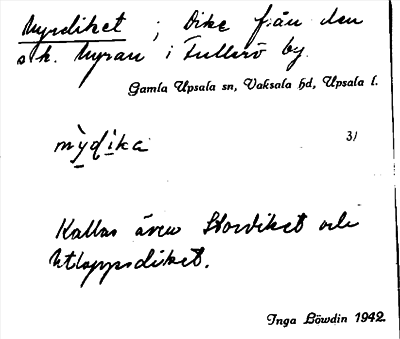 Myrdiket ; Dike från den
s.k. Myran i Fullerö by.
Gamla Upsala sn, Vaksala hd, Upsala l.
mỳdịka 3/
Kallas även Stordiket och
Utloppsdiket.
Inga Löwdin 1942.